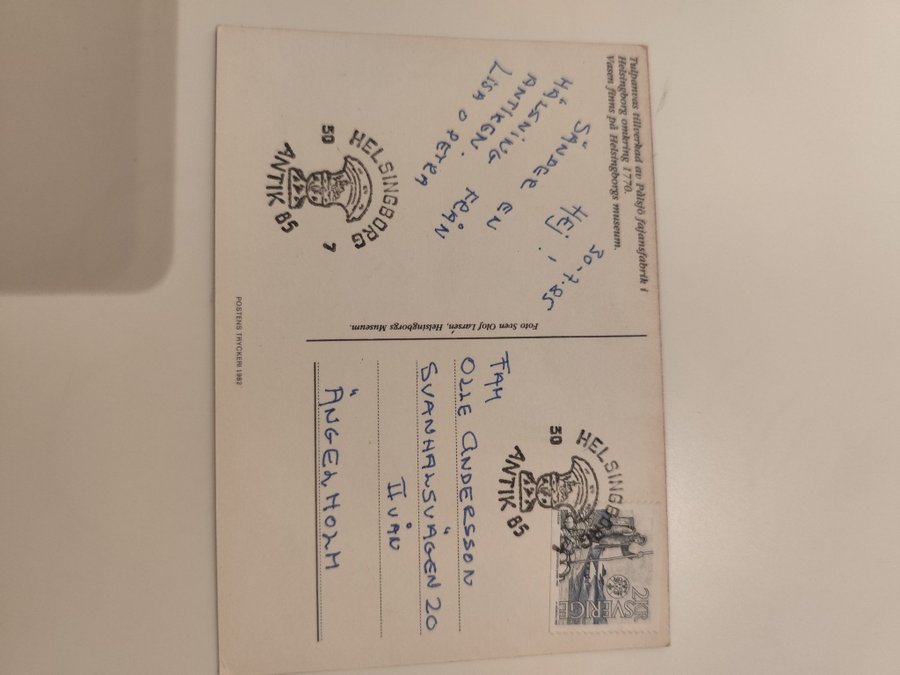 Tulpanvas tillverkad av Pålsjö fajansfabrik i
Helsingborg omkring 1770.
Vasen finns på Helsingborgs museum.
30-7.85
HEJ!
SÄNDER EN
HÄLSNING FRÅN
ANTIKEN.
LISA O PETRA
HELSINGBORG
30 7
ANTIK 85
Foto Sven Olof Larsén, Helsingborgs Museum.
POSTENS TRYCKERI 1982
HELSINGBORG
30 7
ANTIK 85
SVERIGE
2 KR
FAM
OLLE ANDERSSON
SVANHALSVÄGEN 20
II VÅN
ÄNGELHOLM